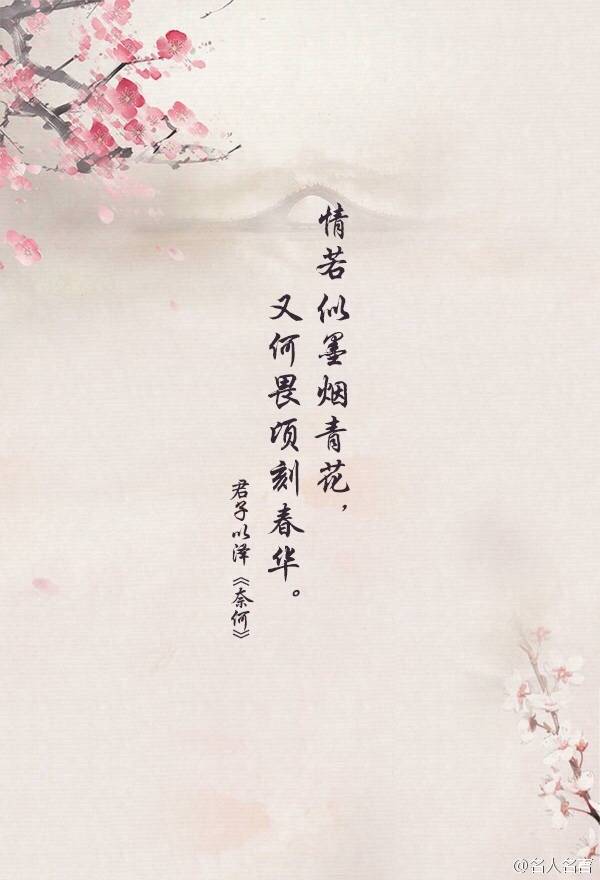 情若似墨烟青花，
又何畏顷刻春华。
君子以泽《奈何》
@名人名言